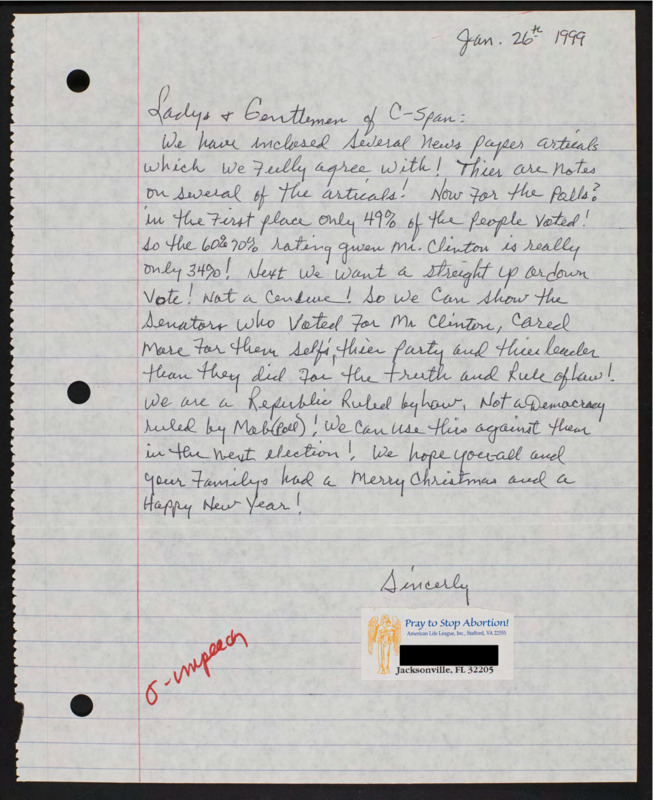 Jan. 26th 1999
Ladys & Gentlemen of C-Span:
We have inclosed several News paper articals
which we Fully agree with! Thier are Notes
on several of the articals! Now For the Polls?
in the First place only 49% of the People Voted!
so the 60 to 70% rating given Mr. Clinton is really
only 34%! Next we want a streight up or down
Vote! Not a Censure! So we Can show the
Senators who Voted For Mr Clinton, Cared
More For them selfs, thier party and thier leader
than they did For the truth and Rule of Law!
We are a Republic Ruled by Law, Not a Democracy
ruled by Mob (Poll)! We can use this against them
in the next election! We hope you all and
your Familys had a Merry Christmas and a
Happy New Year!
Sincerly
Pray to Stop Abortion!
American Life League, Inc., Stafford, VA 22555
Jacksonville, FL 32205
-impeach